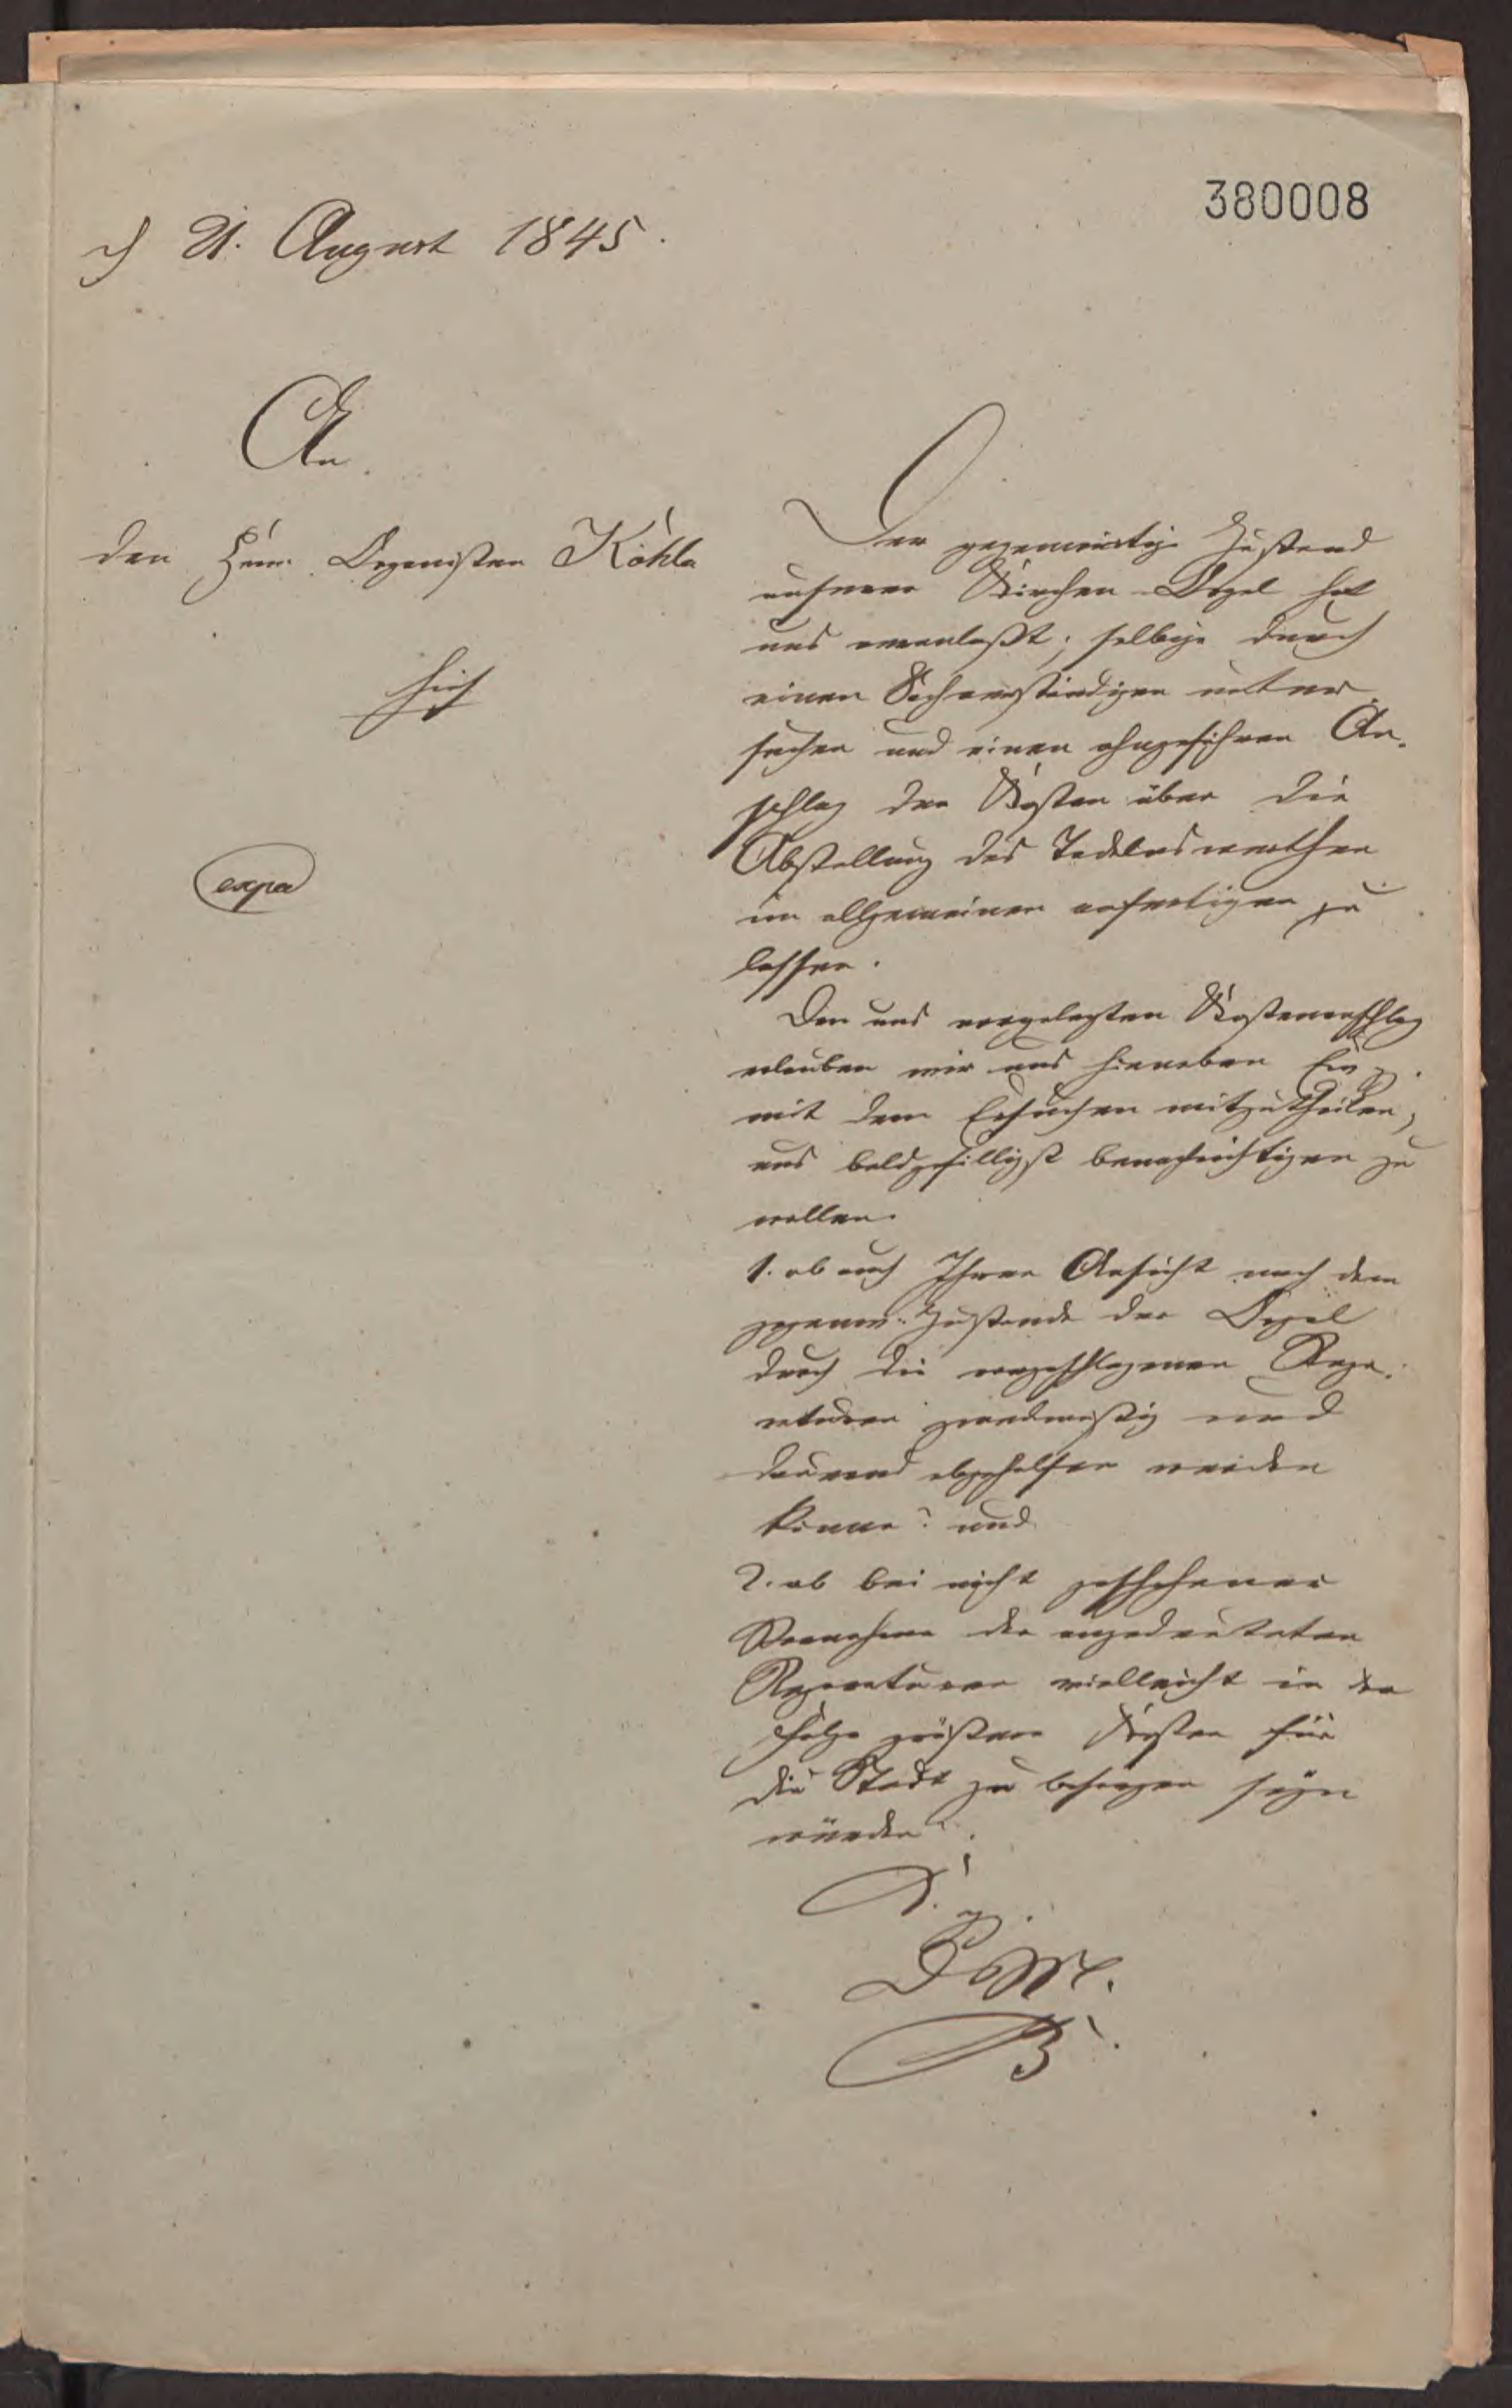 380008
21. August 1845.
An
den Herrn Organisten Köhler
hier
expd
Der gegenwärtige Zustand
unserer Kirchen-Orgel hat
uns veranlaßt, selbige durch
einen Sachverständigen unter
suchen und einen ohngefähren An-
schlag der Kosten über die
Abstellung des Tadelnswerthen
im allgemeinen anfertigen zu
lassen.
Den uns vorgelegten Kostenanschlag
erlauben wir uns hieneben
mit dem Ersuchen mitzutheilen,
uns baldgefälligst benachrichtigen zu
wollen.
1. ob nach Ihrer Ansicht auch dem
gegenw. Zustande der Orgel
durch die vorgeschlagenen Repa-
raturen zweckmäßig und
dauernd abgeholfen werden
könne? und
2. ob bei nicht geschehener
Vornahme der angedeuteten
Reparaturen vielleicht in der
Folge größere Kosten für
die Stadt zu besorgen seyn
würden?